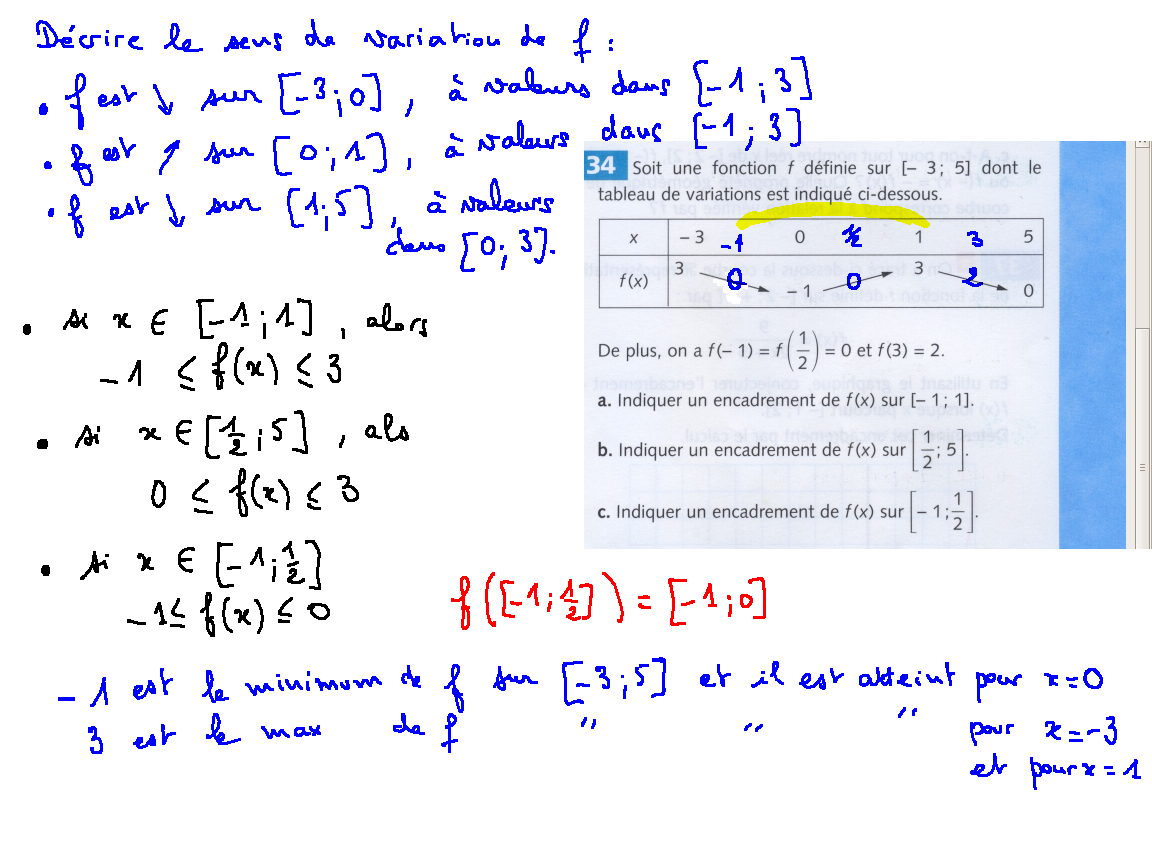 Décrire le sens de variation de f :
• f est ↓ sur [-3;0], à valeurs dans [-1;3]
• f est ↑ sur [0;1], à valeurs dans [-1;3]
• f est ↓ sur [1;5], à valeurs
dans [0;3].
34 Soit une fonction f définie sur [– 3 ; 5] dont le
tableau de variations est indiqué ci-dessous.
x – 3 -1 0 1/2 1 3 5
f(x) 3 0 – 1 0 3 2 0
De plus, on a f(– 1) = f(1/2) = 0 et f(3) = 2.
a. Indiquer un encadrement de f(x) sur [– 1 ; 1].
b. Indiquer un encadrement de f(x) sur [1/2 ; 5].
c. Indiquer un encadrement de f(x) sur [– 1 ; 1/2].
• si x ∈ [-1;1], alors
-1 ≤ f(x) ≤ 3
• si x ∈ [1/2;5], als
0 ≤ f(x) ≤ 3
• si x ∈ [-1;1/2]
-1 ≤ f(x) ≤ 0
f([-1;1/2]) = [-1;0]
-1 est le minimum de f sur [-3;5] et il est atteint pour x=0
3 est le max de f " " "
pour x=-3
et pour x=1